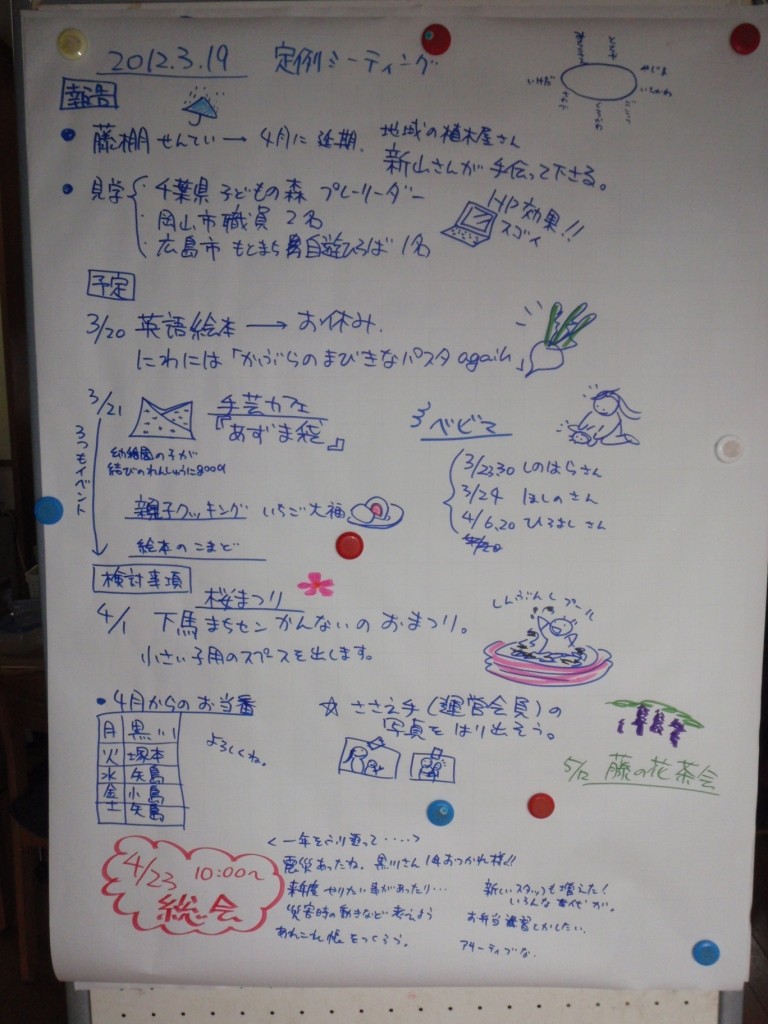 2012.3.19 定例ミーティング
報告
• 藤棚 せんてい → 4月に延期. 地域の植木屋さん
新山さんが手伝って下さる。
• 見学 ・千葉県 子どもの森 プレーリーダー
・岡山市職員 2名
・広島市 もとまち自遊ひろば 1名
HP効果!!
スゴイ
予定
3/20 英語絵本 → お休み.
にわには「かぶらのまびきなパスタ again」
3/21 手芸カフェ
『あずま袋』
3つもイベント
幼稚園の子が
結びのれんしゅうにgood
親子クッキング いちご大福
絵本のこまど
ベビマ
3/23.30 しのはらさん
3/24 ほしのさん
4/6.20 ひろよしさん
検討事項
4/1 桜まつり
下馬まちセン かんないの おまつり。
小さい子用のスペースを出します。
しんぶんしプール
• 4月からのお当番
月 黒川
火 塚本
水 矢島
金 小島
土 矢島
よろしくね。
☆ ささえ手(運営会員)の
写真をはり出そう。
5/12 藤の花茶会
4/23 10:00〜
総会
<一年をふり返って・・・・>
震災あったね. 黒川さん1年おつかれ様!!
来年度 やりたい事があったり…
災害時の動きなど考えよう
あれこれ帳をつくろう。
新しいスタッフも増えた!
お弁当